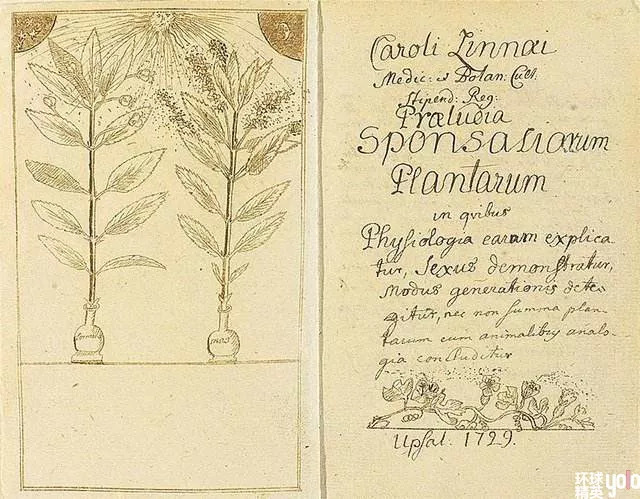 femina
mas
Caroli Linnæi
Medic: et Botan: Cult.
Stipend: Reg:
Præludia
Sponsaliarum
Plantarum
in qvibus
Physiologia earum explica
tur, Sexus demonstratur,
Modus generationis dete-
gitur, nec non summa plan-
tarum cum animalibus analo-
gia concluditur
Upsal. 1729.
环球
精英 yolo